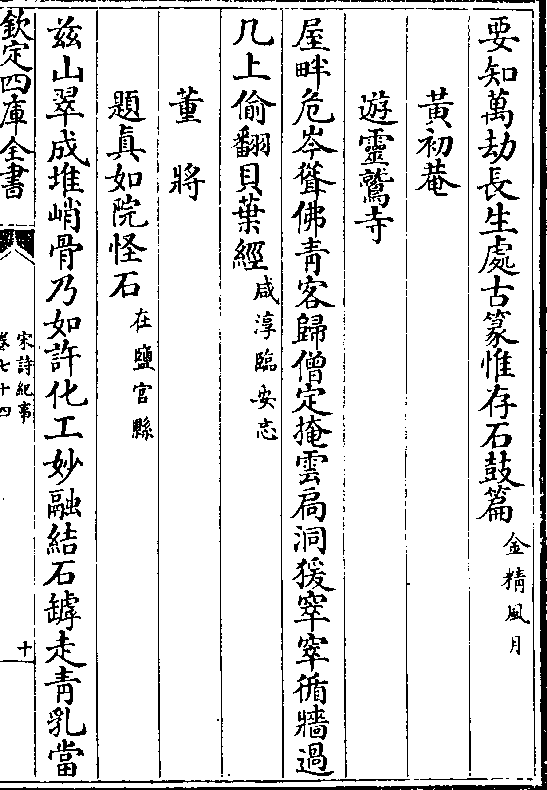 要知萬劫長生處古篆惟存石鼓篇金精風月
黃初菴
遊靈鷲寺
屋畔危岑聳佛青客歸僧定掩雲扄洞猨窣窣循牆過
几上偷翻貝葉經咸淳臨安志
董將
題真如院怪石在鹽官縣
茲山翠成堆峭骨乃如許化工妙融結石罅走青乳當
欽定四庫全書
宋詩紀事
卷七十四
十